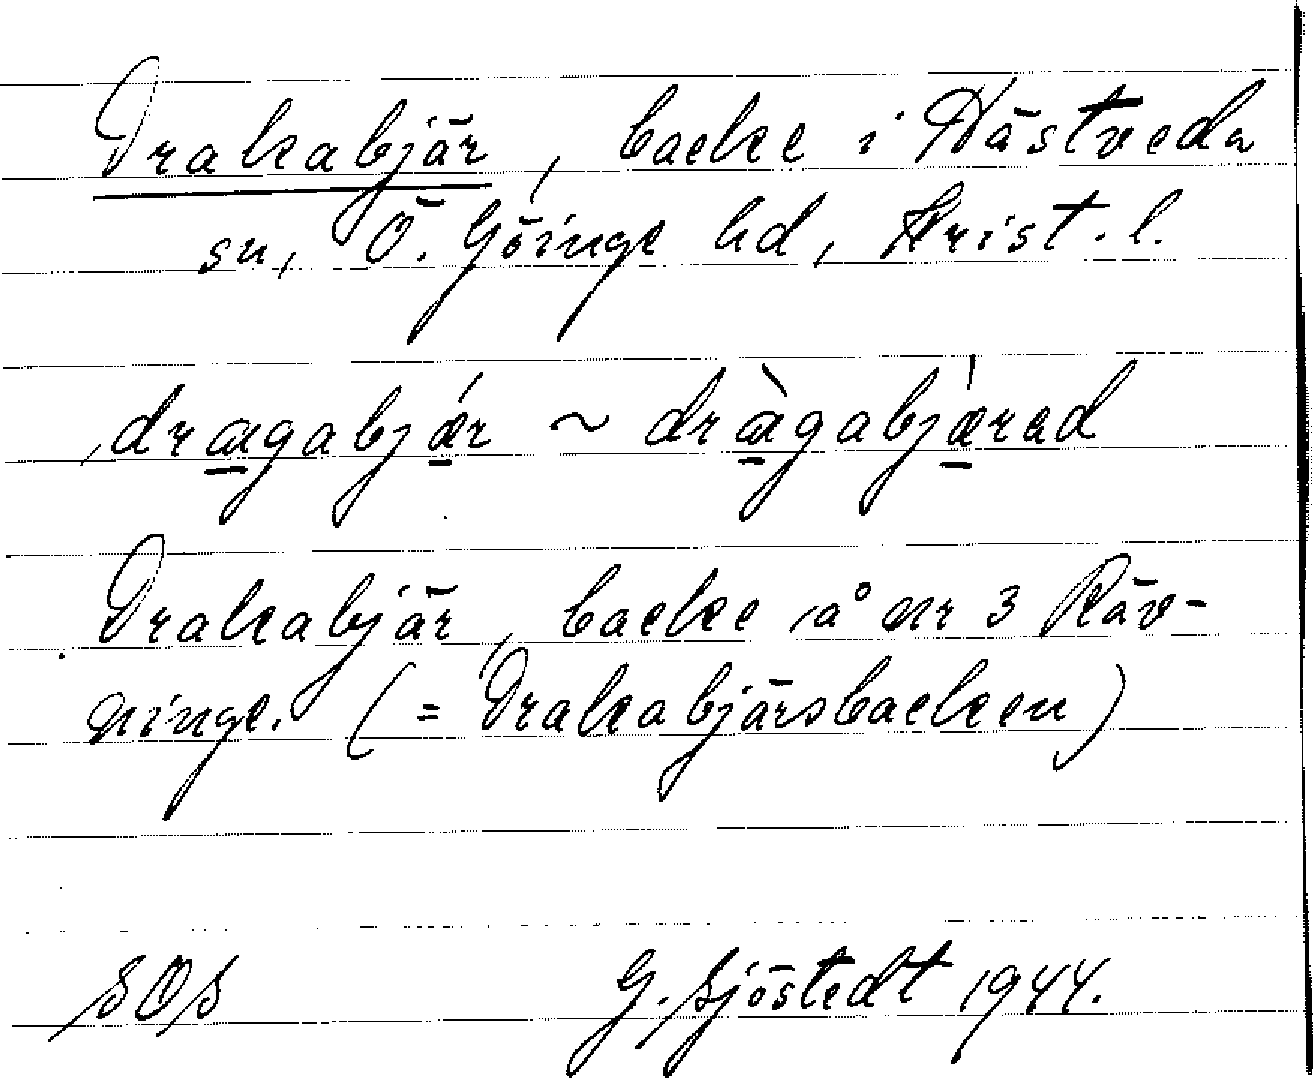 Drakabjär, backe i Hästveda
sn, Ö. Göinge hd, Krist. l.
dragabjǽr ~ dràgabjæ̀red
Drakabjär, backe å nr 3 Räv-
ninge. (= Drakabjärsbacken)
SOS G. Sjöstedt 1944.